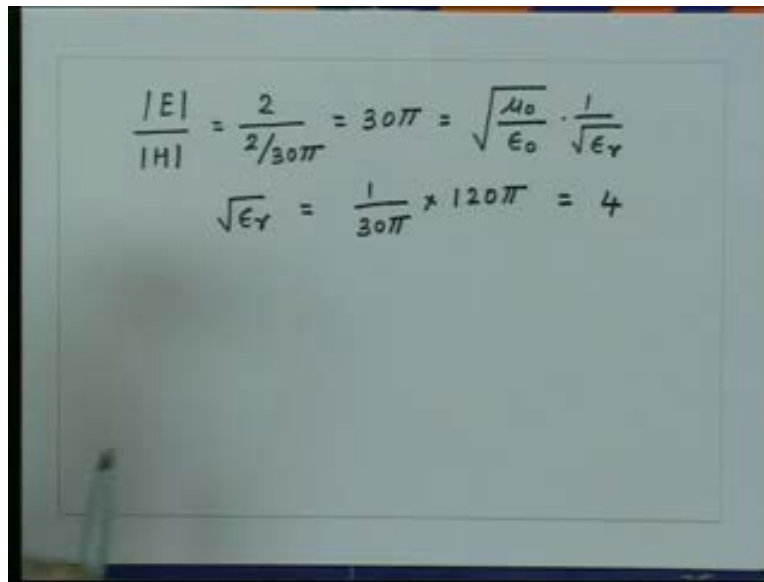 |E| / |H| = 2 / (2/30π) = 30π = √(μ₀/ε₀) · 1/√εᵣ
√εᵣ = 1/30π × 120π = 4